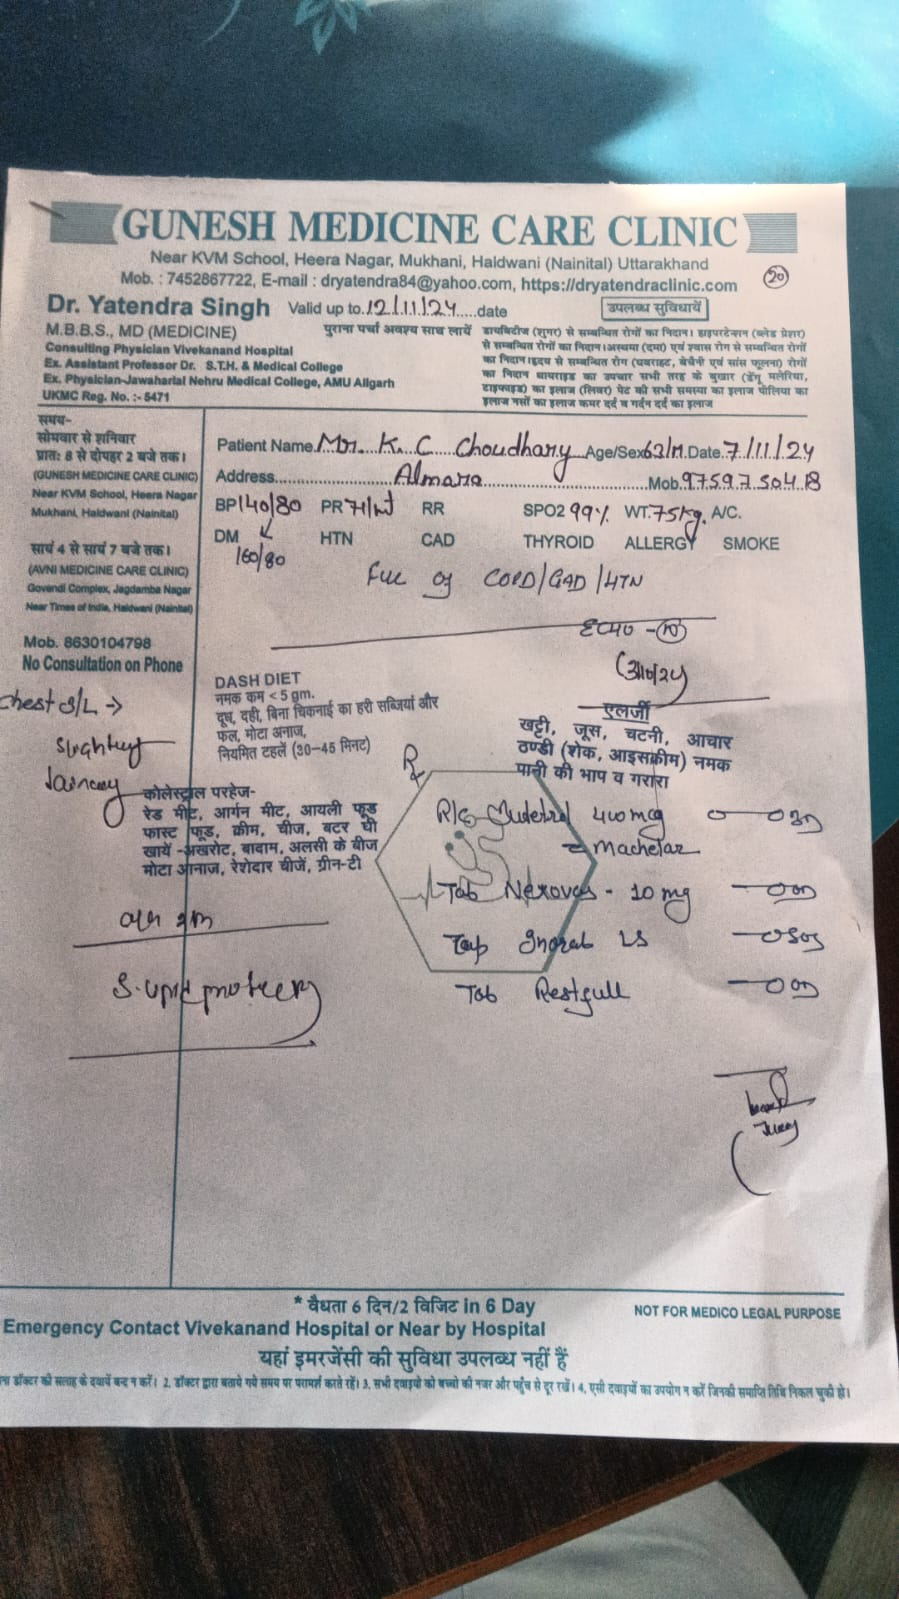 GUNESH MEDICINE CARE CLINIC
Near KVM School, Heera Nagar, Mukhani, Haldwani (Nainital) Uttarakhand
Mob. : 7452867722, E-mail : dryatendra84@yahoo.com, https://dryatendraclinic.com
20
Dr. Yatendra Singh Valid up to 12/11/24 date
M.B.B.S., MD (MEDICINE) पुराना पर्चा अवश्य साथ लायें
Consulting Physician Vivekanand Hospital
Ex. Assistant Professor Dr. S.T.H. & Medical College
Ex. Physician-Jawahartal Nehru Medical College, AMU Allgarh
UKMC Reg. No. :- 5471
उपलब्ध सुविधायें
डायबिटीज (शुगर) से सम्बन्धित रोगों का निदान। हाइपरटेन्शन (ब्लेड प्रेशर)
से सम्बन्धित रोगों का निदान।अस्थमा (दमा) एवं श्वास रोग से सम्बन्धित रोगों
का निदान।हृदय से सम्बन्धित रोग (घबराहट, बेचैनी एवं सांस फूलना) रोगों
का निदान थायराइड का उपचार सभी तरह के बुखार (डेंगू मलेरिया,
टाइफाइड) का इलाज (लिवर) पेट की सभी समस्या का इलाज पीलिया का
इलाज नसों का इलाज कमर दर्द व गर्दन दर्द का इलाज
समय-
सोमवार से शनिवार
प्रातः 8 से दोपहर 2 बजे तक।
(GUNESH MEDICINE CARE CLINIC)
Near KVM School, Heera Nagar
Mukhani, Haldwani (Nainital)
सायं 4 से सायं 7 बजे तक।
(AVNI MEDICINE CARE CLINIC)
Govendi Complex, Jagdamba Nagar
Near Times of India, Haldwani (Nainital)
Mob. 8630104798
No Consultation on Phone
Patient Name Mr. K. C Choudhary Age/Sex 63/M Date 7/11/24
Address Almora Mob. 9759750418
BP 140/80 PR 71/mt RR SPO2 99% WT. 75kg. A/C.
DM HTN CAD THYROID ALLERGY SMOKE
160/80
COPD/CAD/HTN
DASH DIET
नमक कम < 5 gm.
दूध, दही, बिना चिकनाई का हरी सब्जियां और
फल, मोटा अनाज,
नियमित टहलें (30-45 मिनट)
एलर्जी
खट्टी, जूस, चटनी, आचार
ठण्डी (शेक, आइसक्रीम) नमक
पानी की भाप व गरारा
Chest
कोलेस्ट्रोल परहेज-
रेड मीट, आर्गन मीट, आयली फूड
फास्ट फूड, क्रीम, चीज, बटर घी
खायें -अखरोट, बादाम, अलसी के बीज
मोटा अनाज, रेशेदार चीजें, ग्रीन-टी
Rx
400 mcg
Tab Nexovas - 10 mg
LS
Tab Restfull
* वैधता 6 दिन/2 विजिट in 6 Day
NOT FOR MEDICO LEGAL PURPOSE
Emergency Contact Vivekanand Hospital or Near by Hospital
यहां इमरजेंसी की सुविधा उपलब्ध नहीं हैं
डॉक्टर की सलाह के दवायें बन्द न करें। 2. डॉक्टर द्वारा बताये गये समय पर परामर्श करते रहें। 3. सभी दवाइयो को बच्चो की नजर और पहुँच से दूर रखें। 4, एसी दवाइयों का उपयोग न करें जिनकी समाप्ति तिथि निकल चुकी हो।